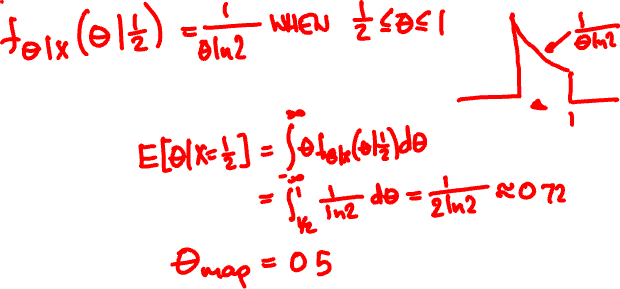 fΘ|X(θ|1/2) = 1/(θ ln2) WHEN 1/2 ≤ θ ≤ 1
1/(θ ln2)
1
E[Θ|X=1/2] = ∫_{-∞}^{∞} θ fΘ|X(θ|1/2) dθ
= ∫_{1/2}^{1} 1/ln2 dθ = 1/(2 ln2) ≈ 0 72
Θmap = 0 5